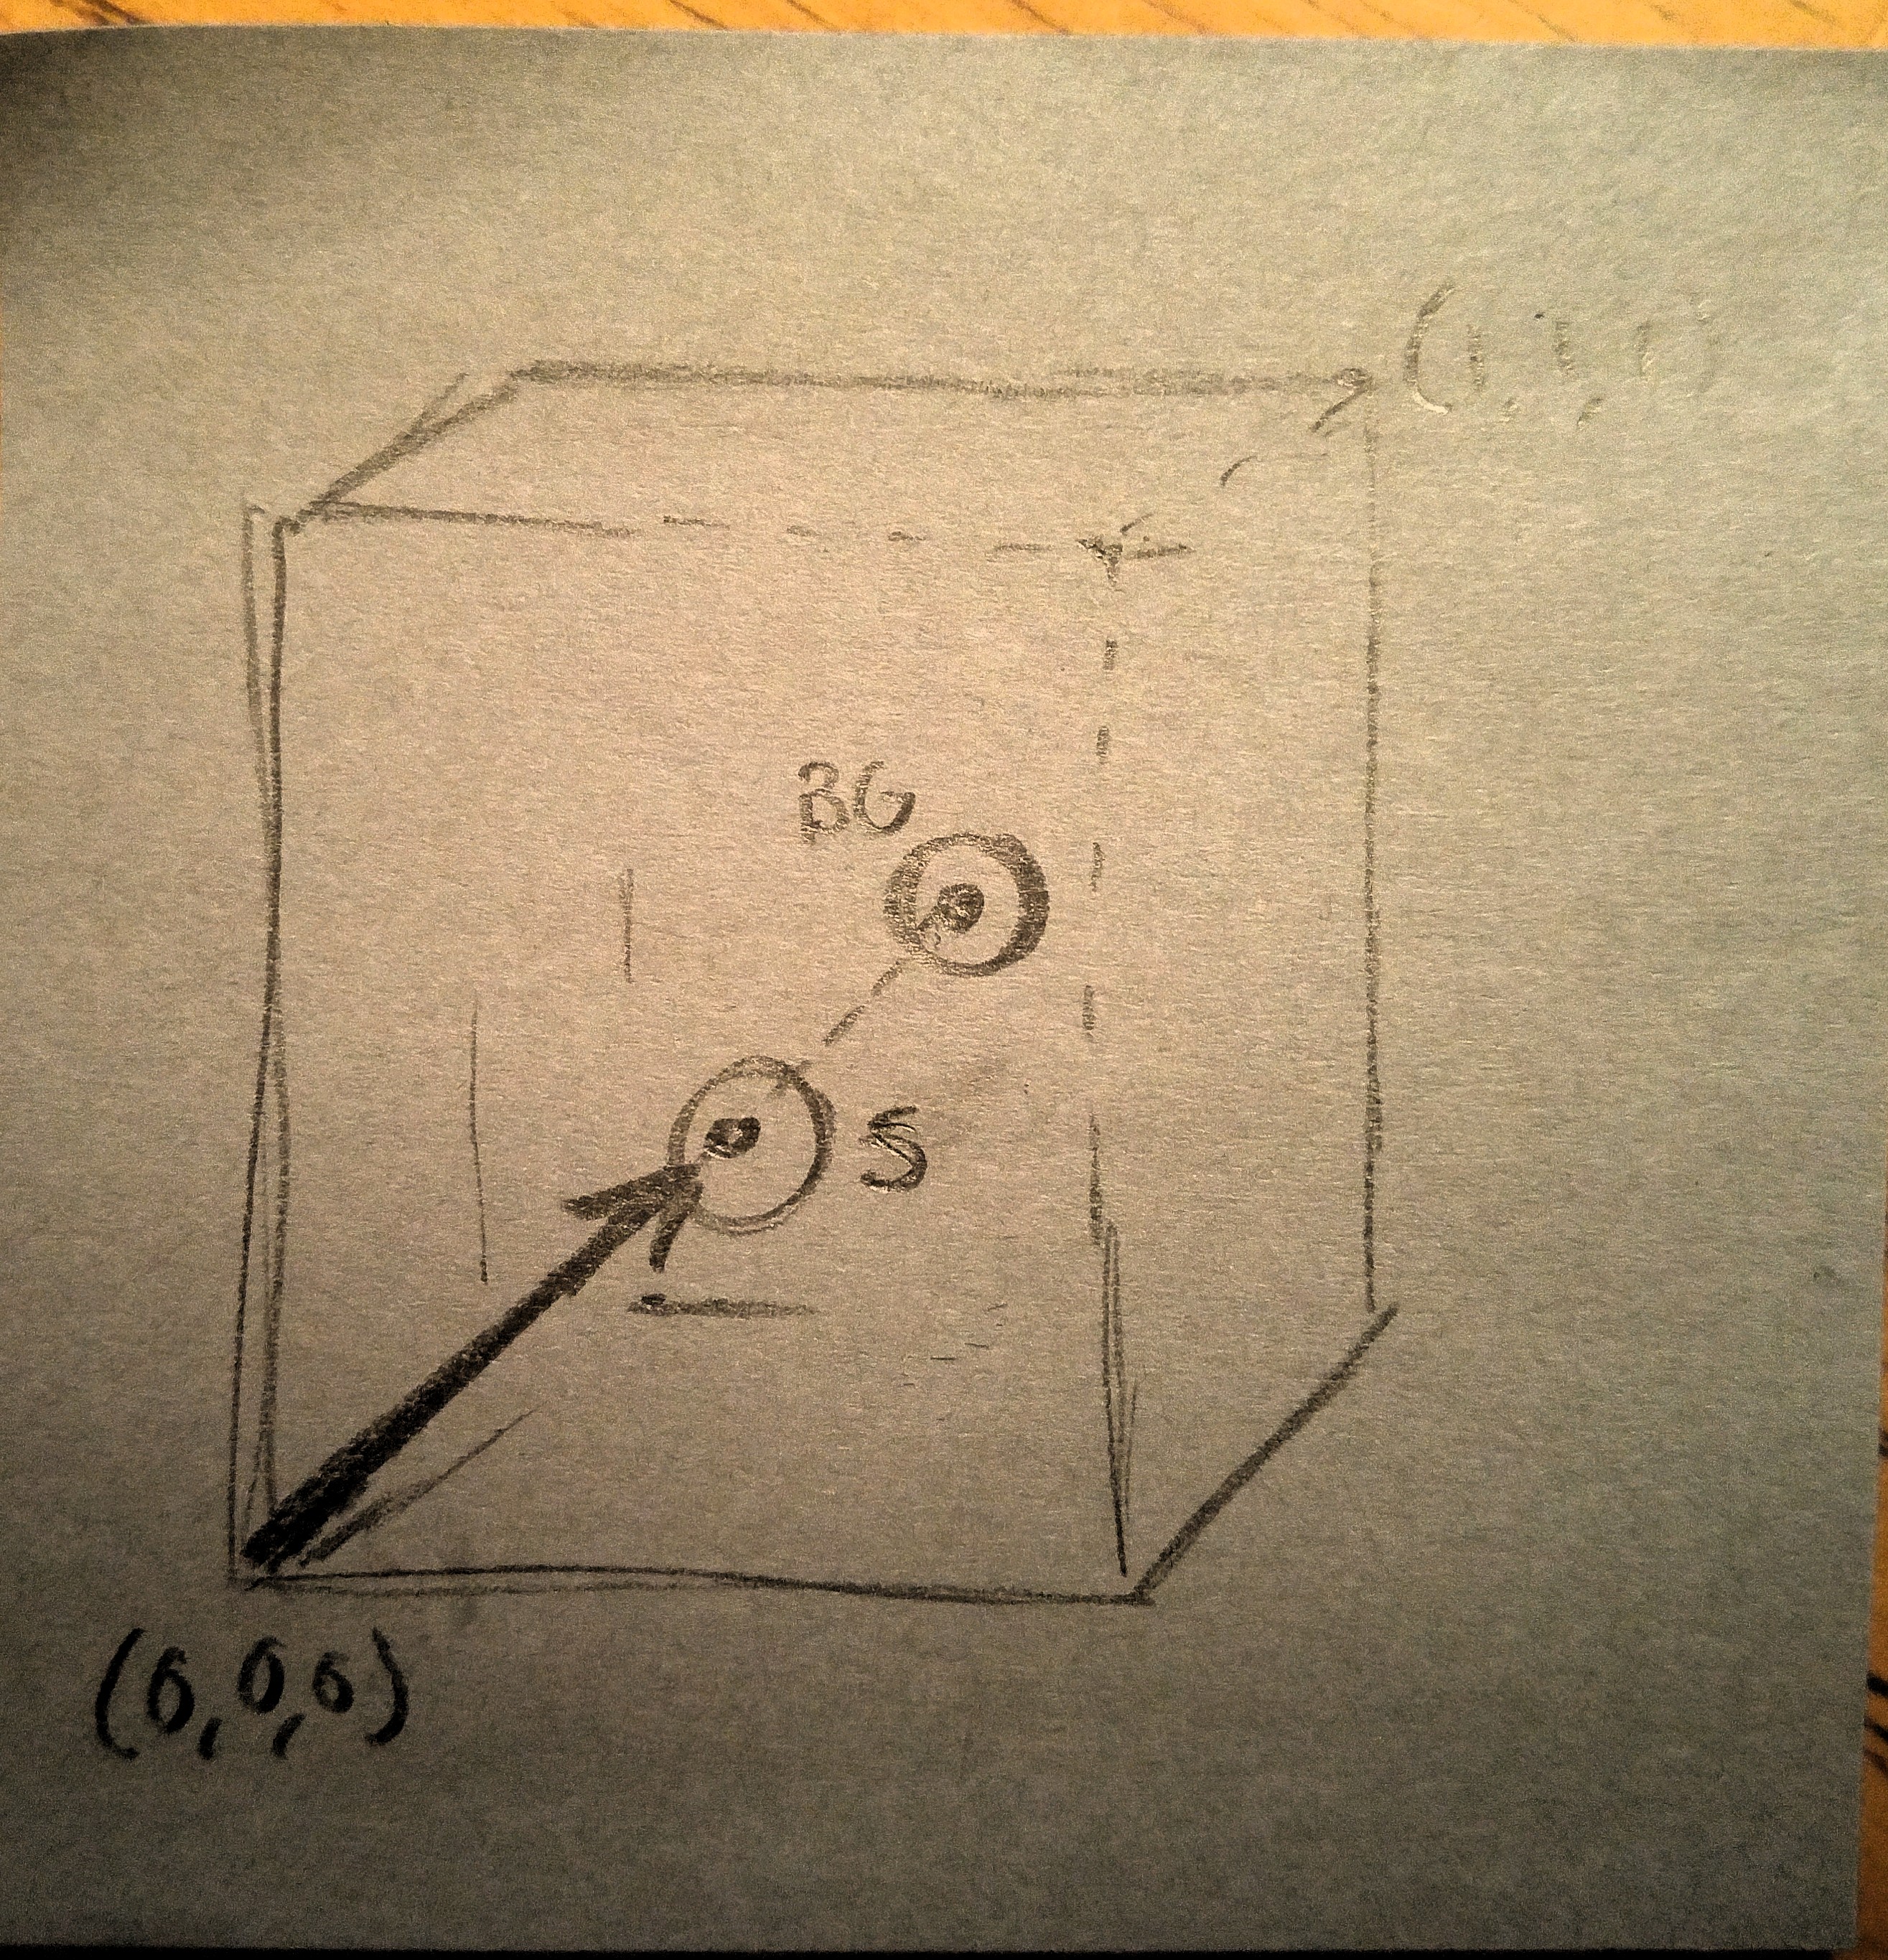 (1,1,1)
BG
S
(0,0,0)